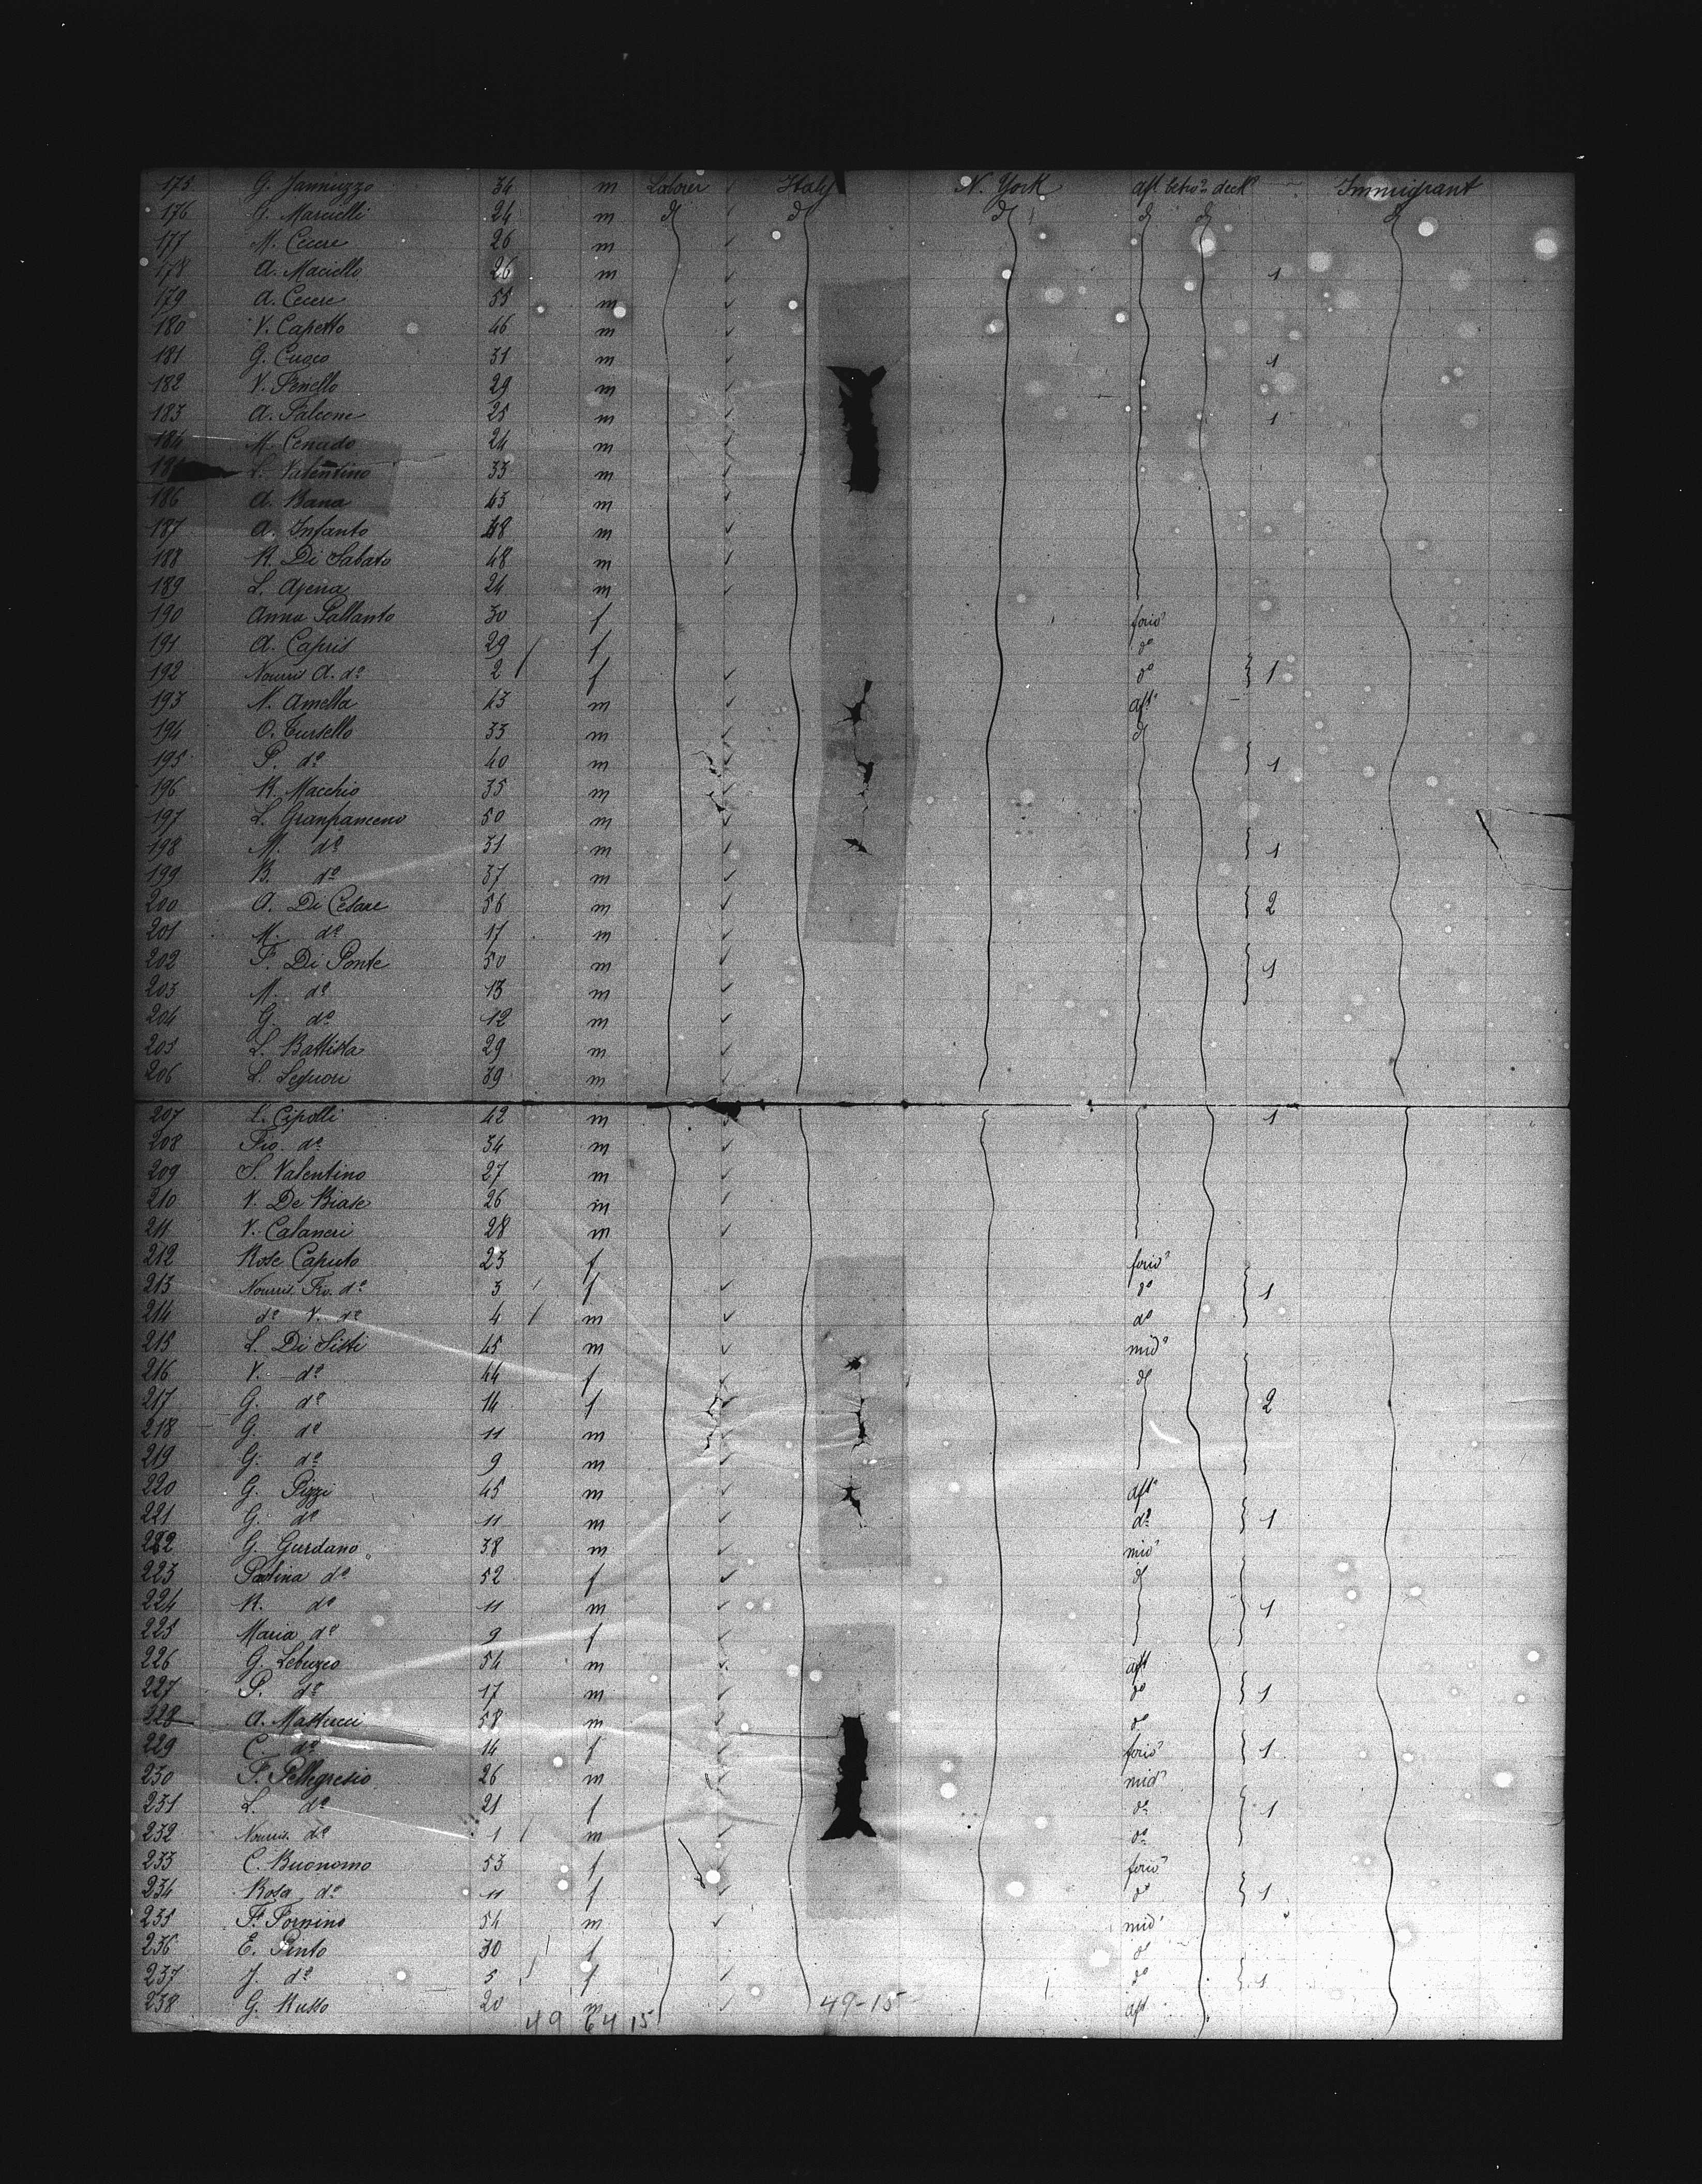 175 G. Janniuzzo 34 m Laborer Italy N. York aft betw: deck Immigrant
176 G. Marcielli 24 m do do do do do do
177 M. Cecere 26 m
178 A. Maciello 26 m 1
179 A. Cecere 55 m
180 V. Capetto 46 m
181 G. Cuoco 31 m 1
182 V. Fonello 29 m
183 A. Falcone 25 m 1
184 M. 24 m
L. Valentino 33 m
186 A. Bana 43 m
187 A. Infanto 48 m
188 R. Di Sabato 48 m
189 L. Apena 24 m
190 Anna Pallanto 30 f forwd
191 A. Capris 29 f do
192 Nourris A. do 2 f do 1
193 N. Amella 43 m aft
194 O. Tursello 33 m do
195 P. do 40 m 1
196 R. Macchio 35 m
197 L. Granfranceno 50 m
198 M. do 31 m 1
199 B. do 37 m
200 A. Di Cesare 56 m 2
201 M. do 17 m
202 F. Di Ponte 50 m 1
203 M. do 13 m
204 G. do 12 m
205 L. Battista 29 m
206 L. Leguori 39 m
207 L. Cipolli 42 m 1
208 Fro. do 34 m
209 S. Valentino 27 m
210 V. De Biase 26 m
211 V. Calaneri 28 m
212 Rose Caputo 23 f forwd
213 Nourris. Fro. do 3 f do 1
214 do V. do 4 m do
215 L. Di Sisti 45 m mid
216 V. do 44 f do
217 G. do 14 f 2
218 G. do 11 m
219 G. do 9 m
220 G. Pizzi 45 m aft
221 G. do 11 m do 1
222 G. Gurdano 38 m mid
223 do 52 f do
224 R. do 11 m 1
225 Maria do 9 f
226 G. Lebuzio 54 m aft
227 P. do 17 m do 1
228 A. Mattucci 58 m do
229 C. do 14 f forwd 1
230 F. Pellegresio 26 m mid
231 L. do 21 f do 1
232 Nourris. do 1 m do
233 C. Buonomo 53 f forwd
234 Rosa do 11 f do 1
235 F. Fornino 54 m mid
236 E. Pinto 30 f do
237 J. do 5 f do 1
238 G. Russo 20 m aft
49 64 15 49-15